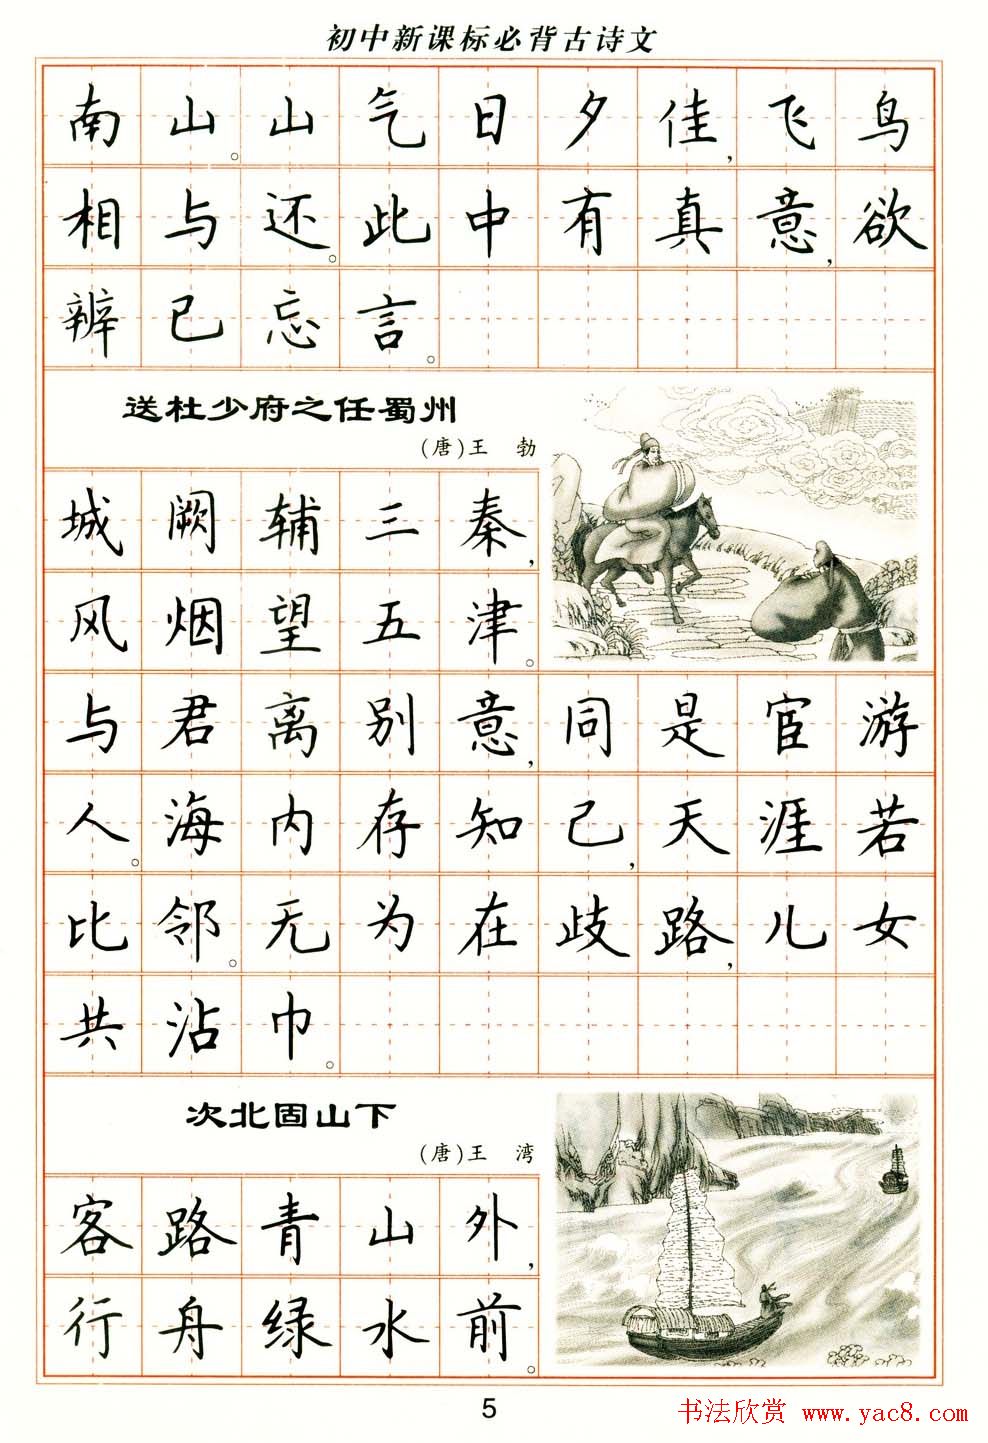 初中新课标必背古诗文
南山。山气日夕佳，飞鸟
相与还。此中有真意，欲
辨已忘言。
送杜少府之任蜀州
(唐)王 勃
城阙辅三秦，
风烟望五津。
与君离别意，同是宦游
人。海内存知己，天涯若
比邻。无为在歧路，儿女
共沾巾。
次北固山下
(唐)王 湾
客路青山外，
行舟绿水前。
5
书法欣赏 www.yac8.com